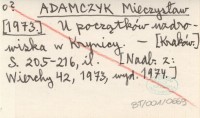 ADAMCZYK Mieczysław
[1973.] U początków uzdro-
wiska w Krynicy. — [Kraków.]
S. 205-216, il. [Nadb. z:
Wierchy 42, 1973, wyd. 1974.]